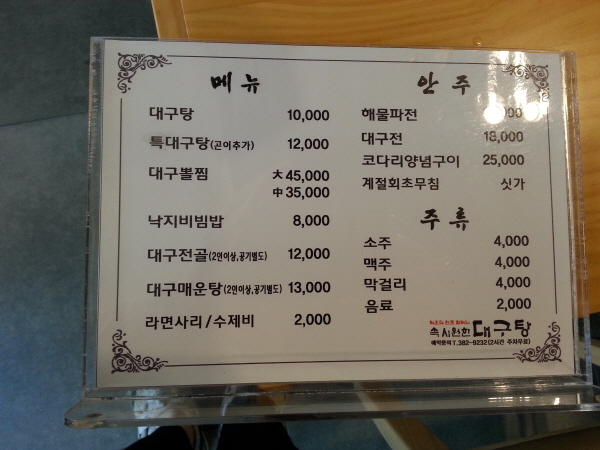 메뉴
대구탕 10,000
특대구탕(곤이추가) 12,000
대구뽈찜 大 45,000
中 35,000
낙지비빔밥 8,000
대구전골(2인이상,공기별도) 12,000
대구매운탕(2인이상,공기별도) 13,000
라면사리/수제비 2,000
안주
해물파전
대구전 18,000
코다리양념구이 25,000
계절회초무침 싯가
주류
소주 4,000
맥주 4,000
막걸리 4,000
음료 2,000
속 시원한 대구탕
예약문의 T.382-9232(2시간 주차무료)